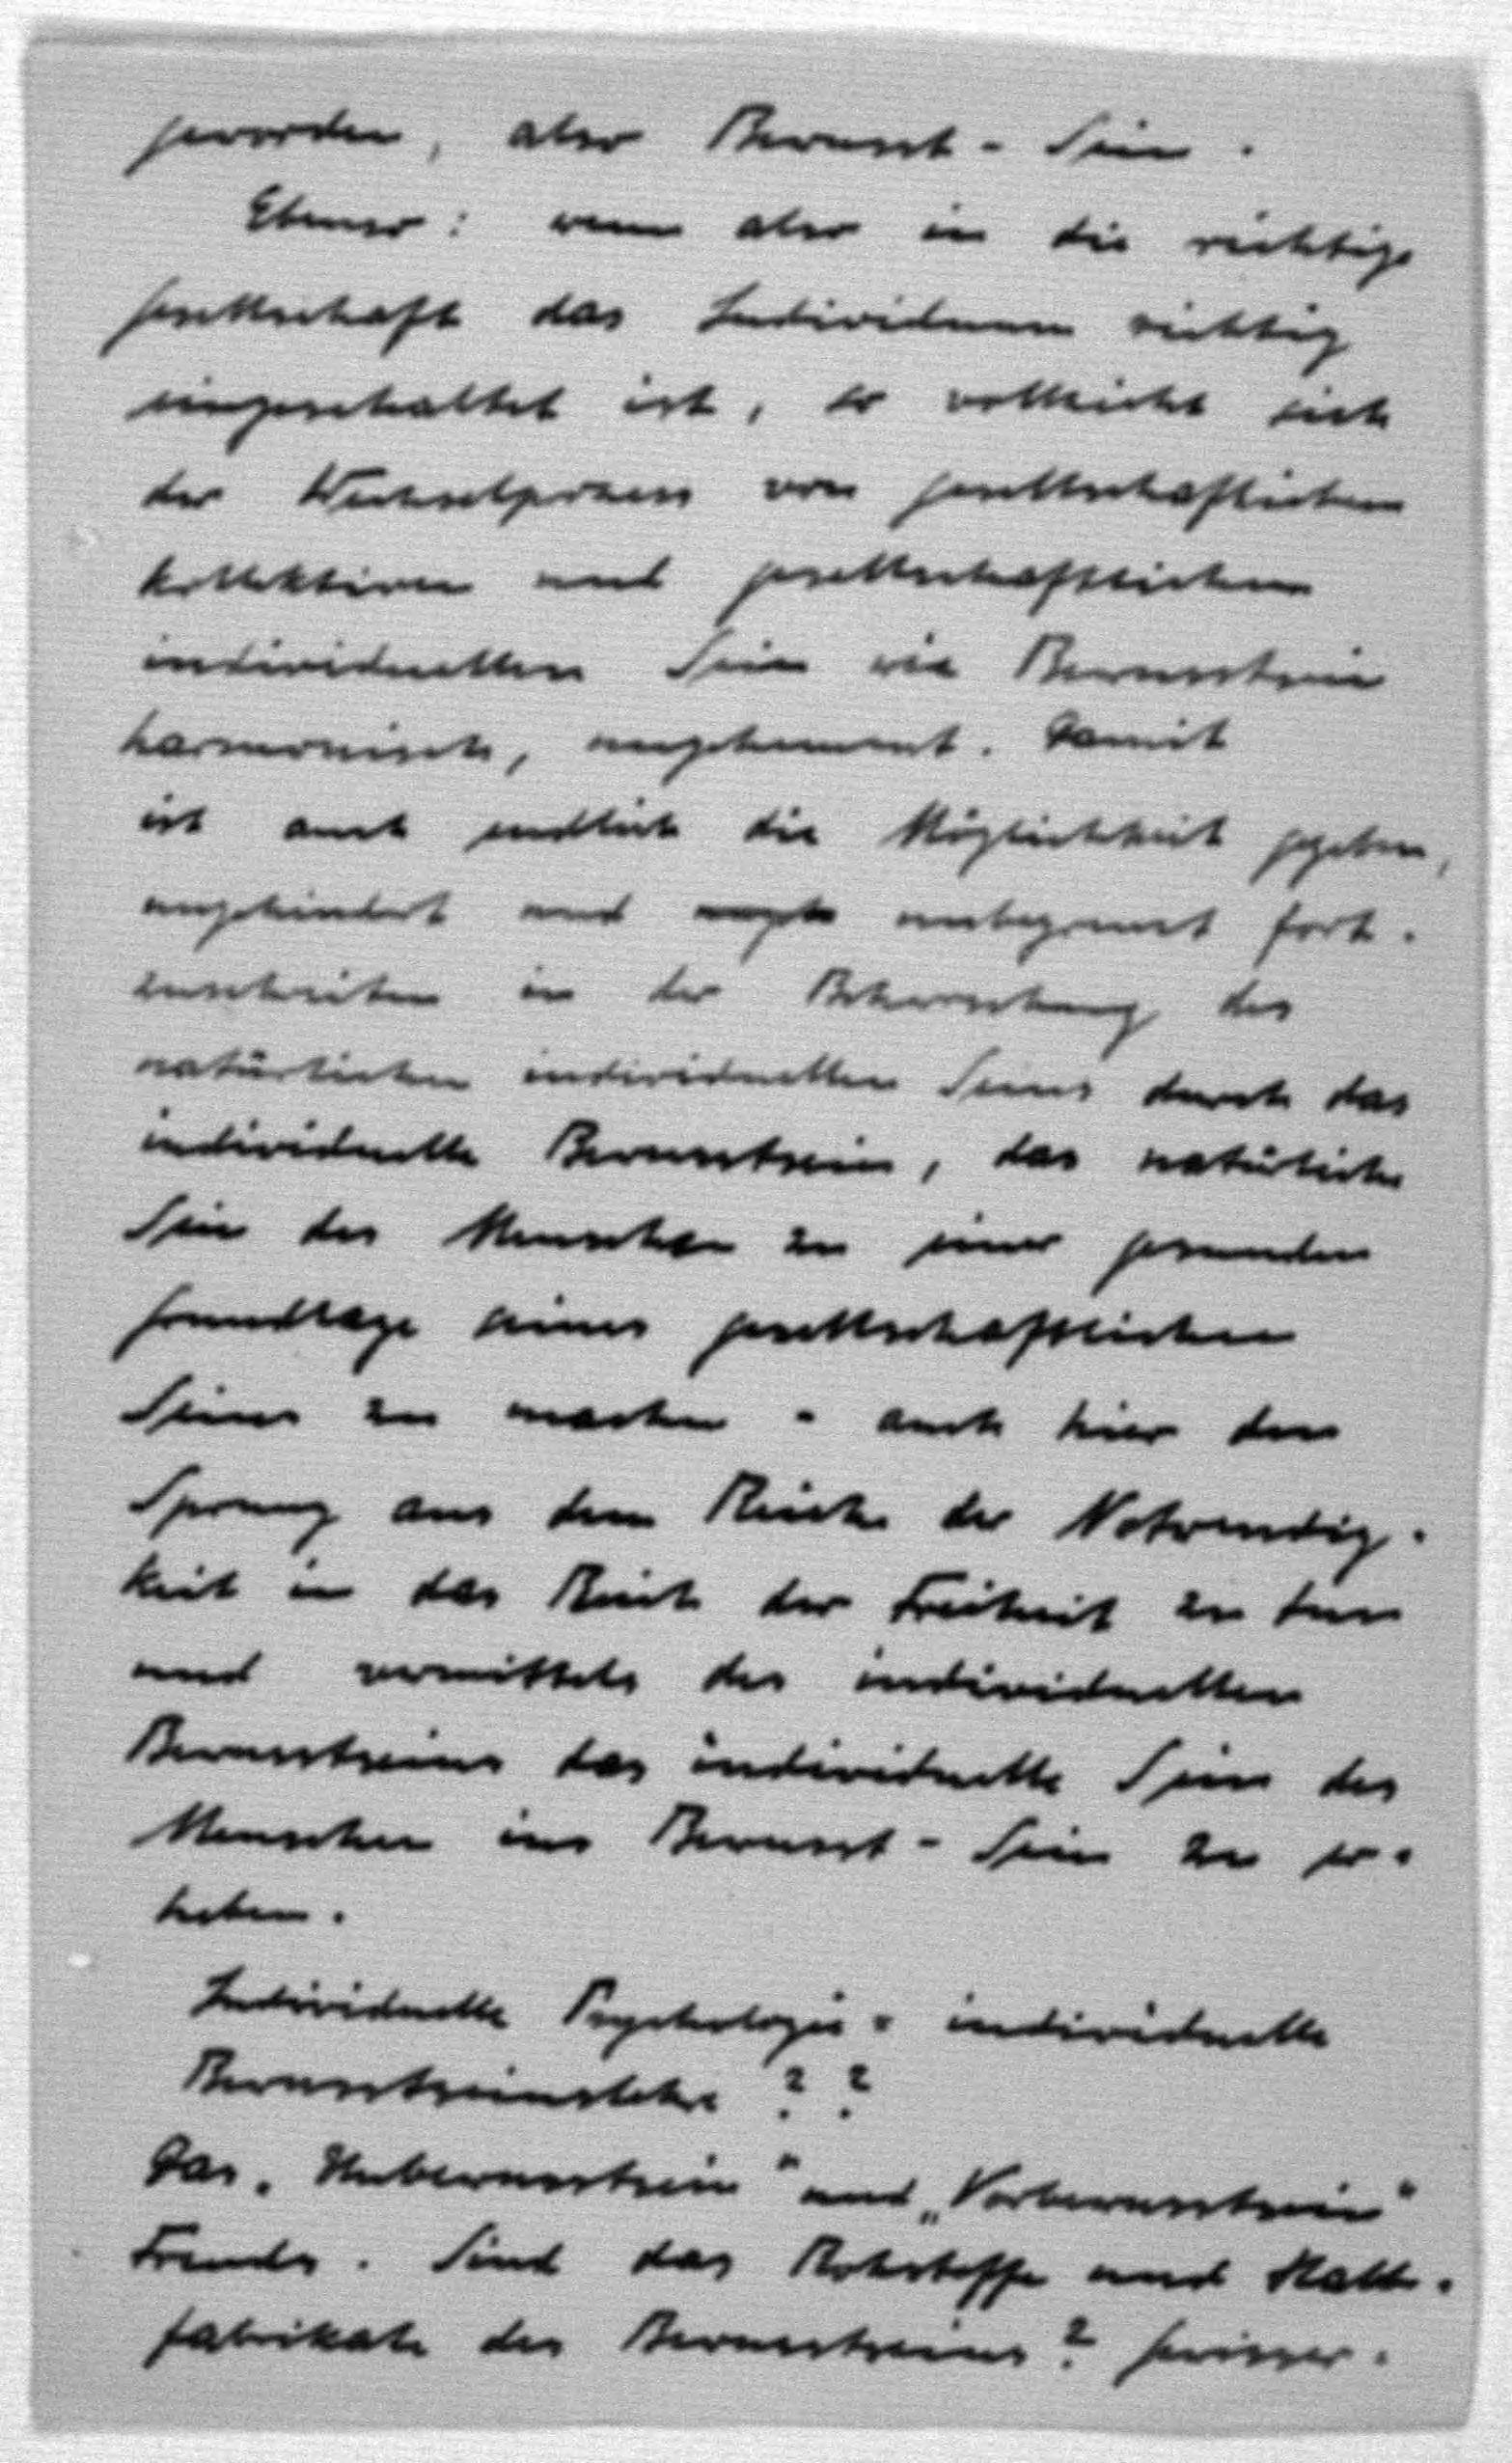 geworden, also Bewusst-Sein.
Ebenso: wenn also in die richtige
Gesellschaft das Individuum richtig
eingeschaltet ist, so vollzieht sich
der Wechselprozess von gesellschaftlichem
kollektiven und gesellschaftlichem
individuellen Sein wie Bewusstsein
harmonisch, ungehemmt. Damit
ist auch endlich die Möglichkeit gegeben,
ungehindert und unbegrenzt fort-
zuschreiten in der Beherrschung des
natürlichen individuellen Seins durch das
individuelle Bewusstsein, das natürliche
Sein des Menschen zu einer gesunden
Grundlage seines gesellschaftlichen
Seins zu machen - auch hier den
Sprung aus dem Reiche der Notwendig-
keit in das Reich der Freiheit zu tun
und vermittels des individuellen
Bewusstseins das individuelle Sein des
Menschen ins Bewusst-Sein zu er-
heben.
Individuelle Psychologie = individuelle
Bewusstseinslehre ? ?
Das „Unbewusstsein" und „Vorbewusstsein"
Freuds. Sind das Rohstoffe und Halb-
fabrikate des Bewusstseins? Gewisser-